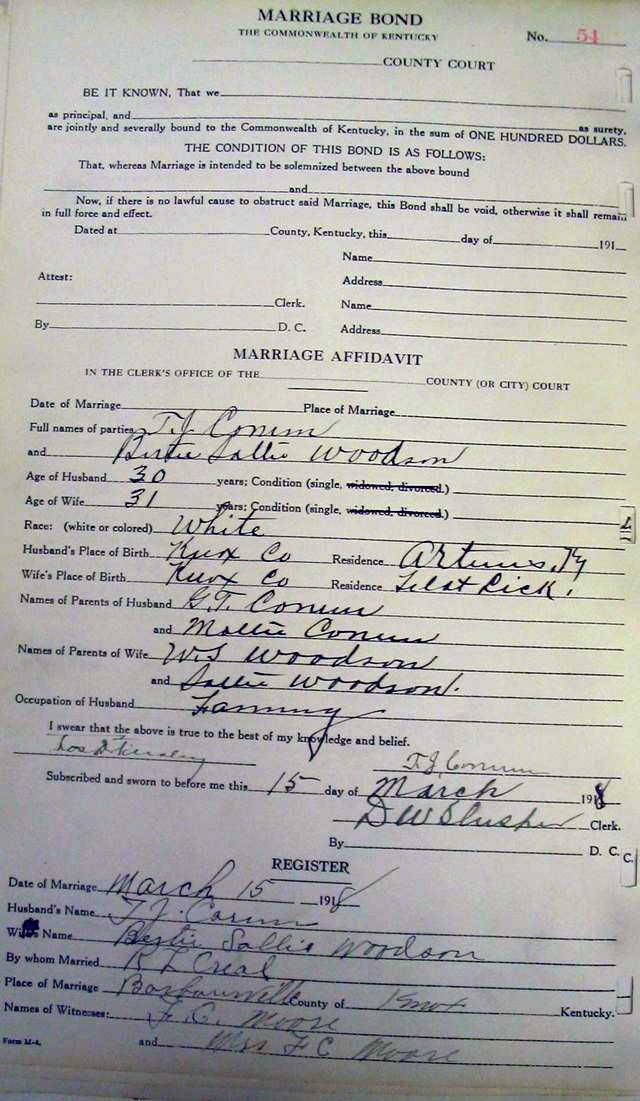 MARRIAGE BOND
THE COMMONWEALTH OF KENTUCKY
No. 54
COUNTY COURT
BE IT KNOWN, That we
as principal, and as surety,
are jointly and severally bound to the Commonwealth of Kentucky, in the sum of ONE HUNDRED DOLLARS.
THE CONDITION OF THIS BOND IS AS FOLLOWS:
That, whereas Marriage is intended to be solemnized between the above bound
and
Now, if there is no lawful cause to obstruct said Marriage, this Bond shall be void, otherwise it shall remain
in full force and effect.
Dated at County, Kentucky, this day of 191
Name
Attest: Address
Clerk. Name
By D. C. Address
MARRIAGE AFFIDAVIT
IN THE CLERK'S OFFICE OF THE COUNTY (OR CITY) COURT
Date of Marriage Place of Marriage
Full names of parties T. J.
and Birtie Sallie Woodson
Age of Husband 30 years; Condition (single, widowed, divorced.)
Age of Wife 31 years; Condition (single, widowed, divorced.)
Race: (white or colored) White
Husband's Place of Birth Knox Co Residence Artemus, Ky
Wife's Place of Birth Knox Co Residence Flat Lick.
Names of Parents of Husband G. T.
and Mollie
Names of Parents of Wife W S Woodson
and Sallie Woodson.
Occupation of Husband Farming
I swear that the above is true to the best of my knowledge and belief.
T. J.
Subscribed and sworn to before me this 15 day of March 1918
D W Slusher Clerk.
By D. C.
C.
REGISTER
Date of Marriage March 15 1918
Husband's Name T. J.
Wife's Name Birtie Sallie Woodson
By whom Married R L Creal
Place of Marriage Barbourville County of Knox Kentucky.
Names of Witnesses: F. C. Moore
Form M-4. and Mrs F C Moore